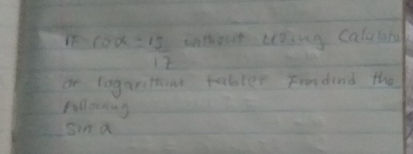 IF Cos α = 15 without using Calculator
17
or logarithms tables Find the
following
Sin α